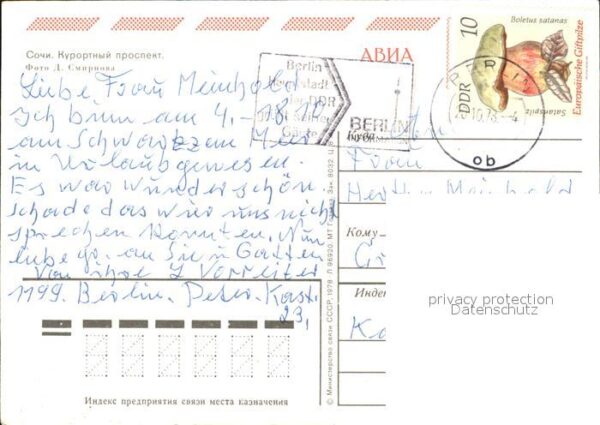 Сочи. Курортный проспект.
Фото Д. Смирнова
АВИА
Liebe Frau Meinhold
Ich bin am 4.-18.
am Schwarzem Meer
in Urlaub gewesen.
Es war wunderschön.
schade das wir uns nicht
sprechen konnten. Nun
liebe an Sie u Gatten
Von ihre Vorreiter
1199. Berlin. Peter-Kast.
23,
Berlin
Hauptstadt
der DDR
Gäste
BERLIN
10
DDR
Boletus satanas
Satanspilz
Europäische Giftpilze
BERLIN
10.78.-4
ob
Куда
An
Frau
Meinhold
Кому
Индекс
privacy protection
Datenschutz
Индекс предприятия связи места назначения
© Министерство связи СССР, 1978